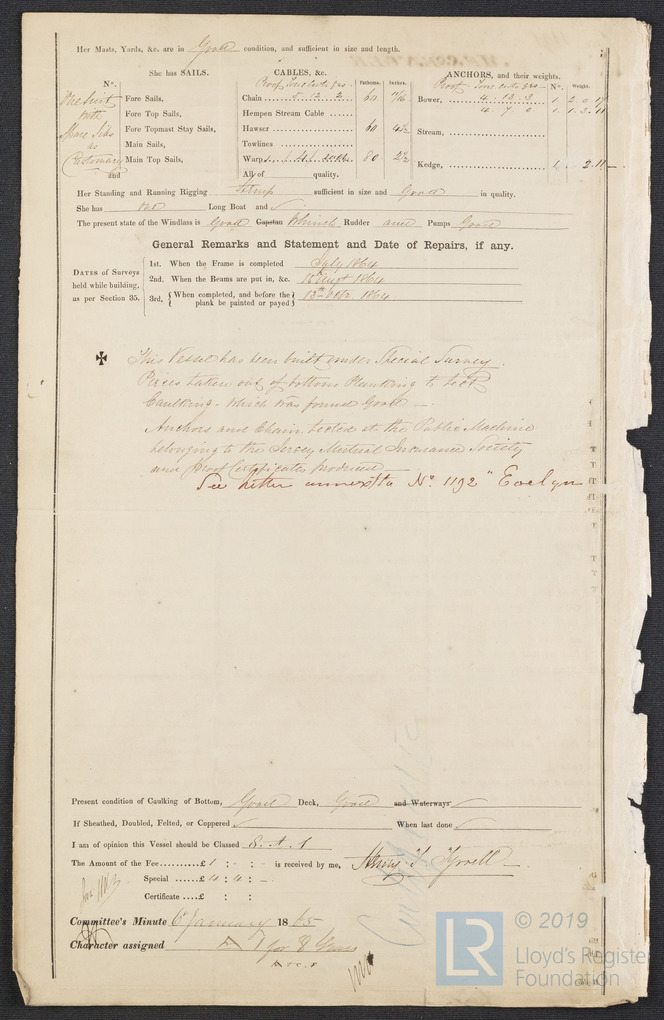 Her Masts, Yards, &c. are in Good condition, and sufficient in size and length.
She has SAILS.
CABLES, &c.
Fathoms.
Inches.
ANCHORS, and their weights.
Nº.
Weight.
Nº.
One Suit
with
Spare Jibs
as
Customary
and
Fore Sails,
Fore Top Sails,
Fore Topmast Stay Sails,
Main Sails,
Main Top Sails,
Proof Tons cwts qrs
Chain 8. 12. 2. 60 11/16
Hempen Stream Cable
Hawser 60 4½
Towlines
Warp 80 2½
All of quality.
Proof Tons cwts qrs
Bower, 4. 13. 3 1
4 7 0 1
Stream,
Kedge, 1
Her Standing and Running Rigging sufficient in size and Good in quality.
She has Long Boat and
The present state of the Windlass is Good Capstan Winch Rudder and Pumps Good
General Remarks and Statement and Date of Repairs, if any.
DATES of Surveys
held while building,
as per Section 35.
1st. When the Frame is completed July 1864
2nd. When the Beams are put in, &c. 15 Augt 1864
3rd, When completed, and before the
plank be painted or payed 13th 1864
This Vessel has been built under Special Survey.
Pieces taken out of bottom Planking to test
Caulking - which was found Good
Anchors and Chain tested at the Public Machine
belonging to the Jersey Mutual Insurance Society
and Proof Certificates produced
See letter annex'd to Nº 1192 "Evelyn
Present condition of Caulking of Bottom, Good Deck, Good and Waterways
If Sheathed, Doubled, Felted, or Coppered When last done
I am of opinion this Vessel should be Classed 8. A. 1
The Amount of the Fee £ 1 : - : - is received by me,
Special £ 4 : 4 : -
Certificate £ : :
Committee's Minute 6 January 1865
Character assigned A 1 for 8 Years
© 2019
LR
Lloyd's Register
Foundation